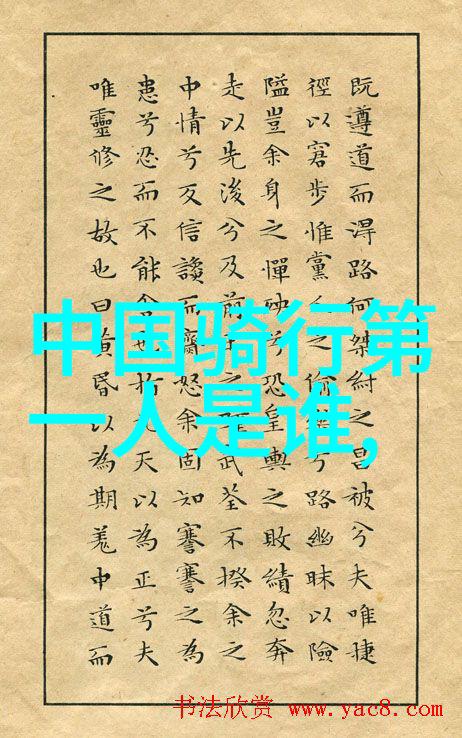 既遵道而淂路何桀紂之昌被兮夫唯捷
徑以窘步惟黨人之偷兮路幽昧以險
隘豈余身之憚殃兮恐皇輿之敗績忽奔
走以先後兮及前王之武荃不揆余之
中情兮反信讒而齌怒余固知謇謇之為
患兮忍而不能舍也指九天以為正兮夫
唯靈修之故也曰黃昏以為期羌中道而
中国骑行第
一人是谁,
书法欣赏 www.yac8.com